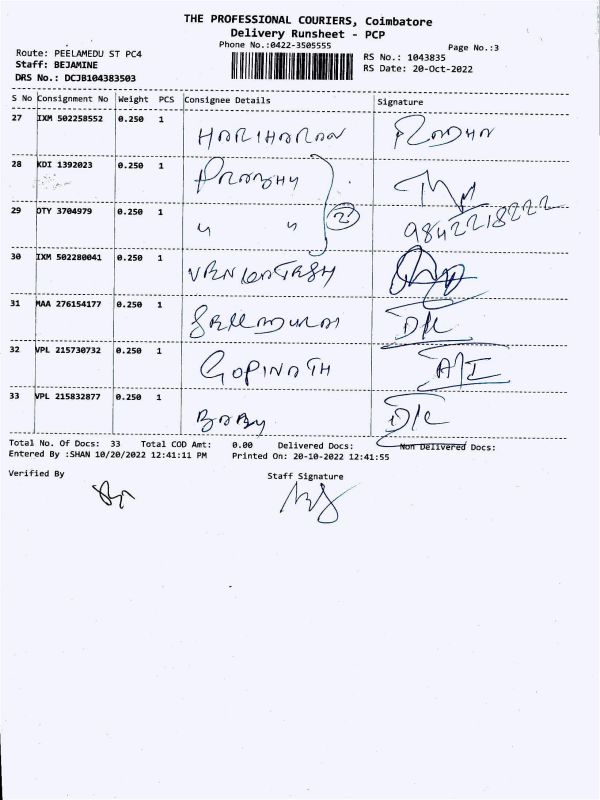 THE PROFESSIONAL COURIERS, Coimbatore
Delivery Runsheet - PCP
Phone No.:0422-3505555
Page No.:3
Route: PEELAMEDU ST PC4
RS No.: 1043835
Staff: BEJAMINE
RS Date: 20-Oct-2022
DRS No.: DCJB104383503
S No Consignment No Weight PCS Consignee Details Signature
27 IXM 502258552 0.250 1 HARIHARAN
28 KDI 1392023 0.250 1 PRABHU
29 OTY 3704979 0.250 1 " " 2 9842218222
30 IXM 502280041 0.250 1 VENKATESH
31 MAA 276154177 0.250 1 D/L
32 VPL 215730732 0.250 1 GOPINATH A/I
33 VPL 215832877 0.250 1 BABY D/L
Total No. Of Docs: 33 Total COD Amt: 0.00 Delivered Docs: Non Delivered Docs:
Entered By :SHAN 10/20/2022 12:41:11 PM Printed On: 20-10-2022 12:41:55
Verified By Staff Signature